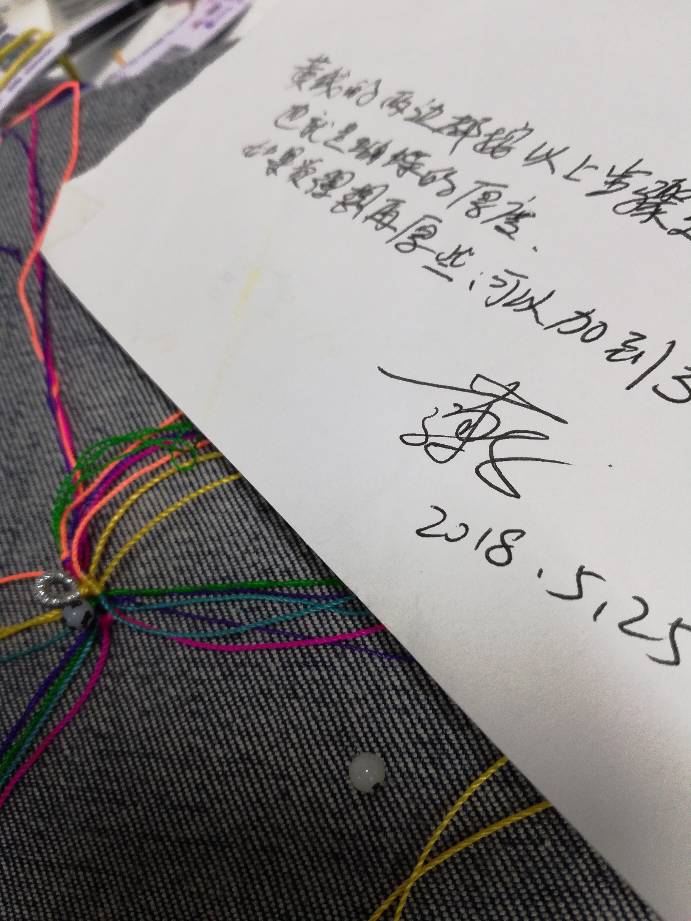 黄线的两边都按以上步骤
也就是蝴蝶的厚度.
如果觉得要再厚些,可以加到3
2018.5.25